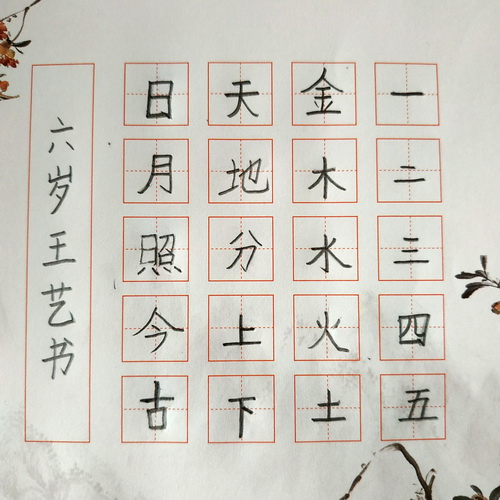 一二三四五
金木水火土
天地分上下
日月照今古
六岁王艺书